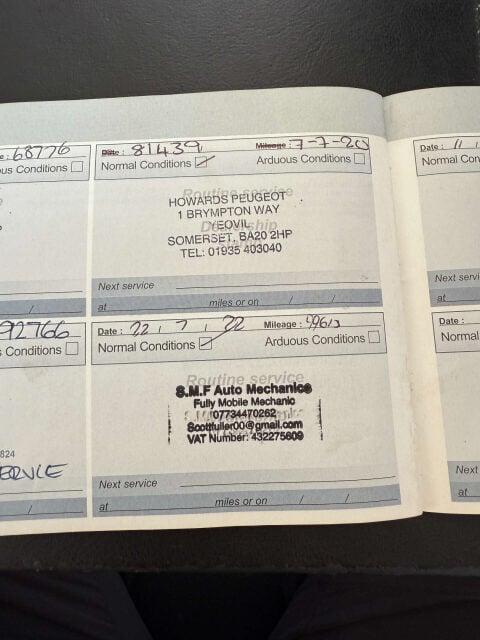 e: 68776
Date: 81439
Mileage: 7-7-20
Date: 11
us Conditions
Normal Conditions
Arduous Conditions
Normal Con
Routine service
HOWARDS PEUGEOT
1 BRYMPTON WAY
YEOVIL
Dealership
SOMERSET, BA20 2HP
TEL: 01935 403040
Next service
Next servi
at / / miles or on / /
at
92766
Date: 22, 7, 22
Mileage:
Date:
s Conditions
Normal Conditions
Arduous Conditions
Normal Con
Routine service
S.M.F Auto Mechanics
Fully Mobile Mechanic
07734470262
Scottfuller00@gmail.com
VAT Number: 432275609
824
ERVICE
Next service
Next
at / miles or on / /
at